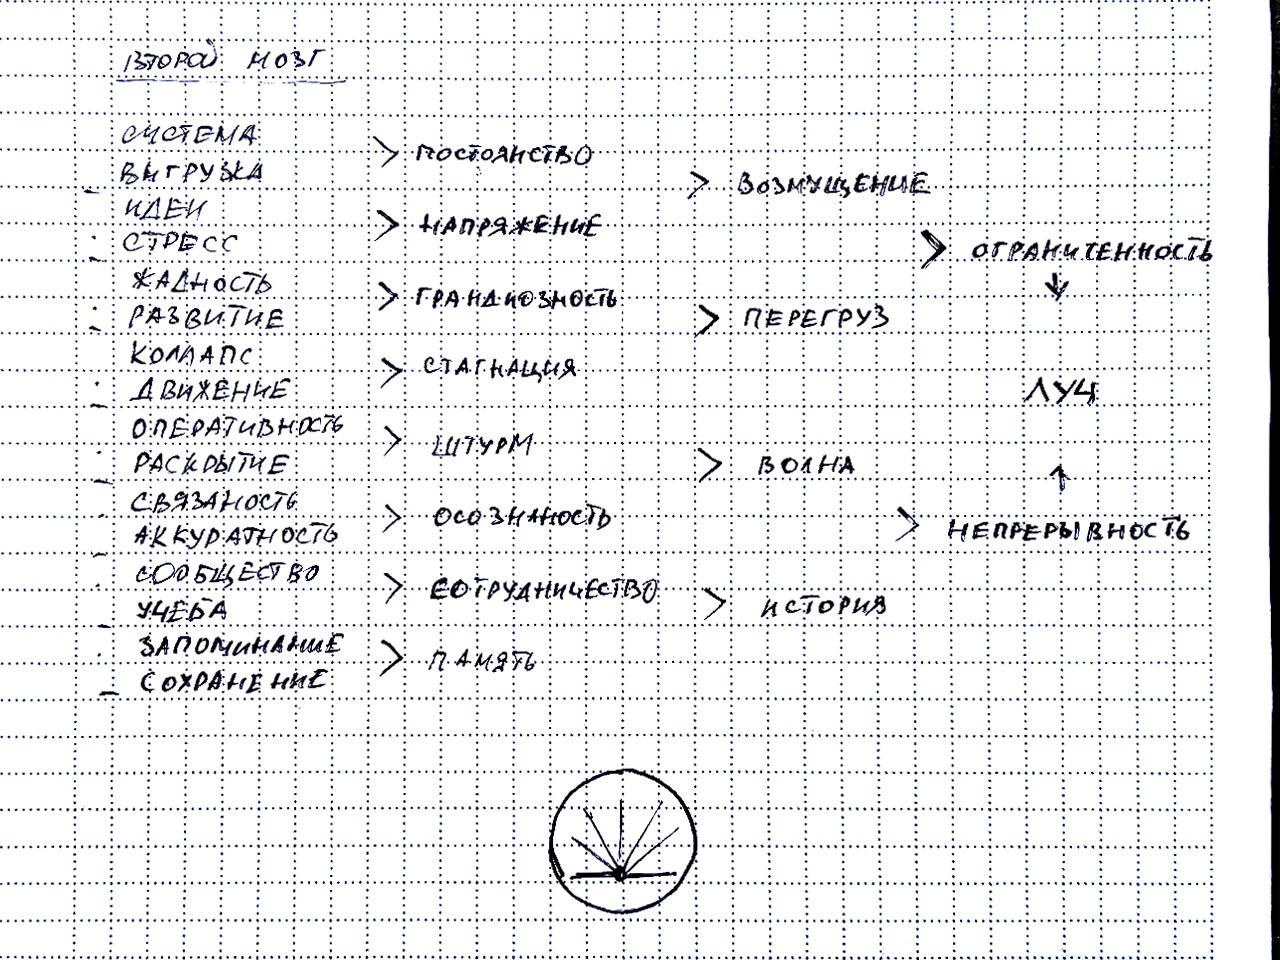 ВТОРОЙ МОЗГ
СИСТЕМА
ВЫГРУЗКА
ИДЕИ
СТРЕСС
ЖАДНОСТЬ
РАЗВИТИЕ
КОЛЛАПС
ДВИЖЕНИЕ
ОПЕРАТИВНОСТЬ
РАСКРЫТИЕ
СВЯЗАНОСТЬ
АККУРАТНОСТЬ
СООБЩЕСТВО
УЧЕБА
ЗАПОМИНАНИЕ
СОХРАНЕНИЕ
> ПОСТОЯНСТВО
> НАПРЯЖЕНИЕ
> ГРАНДИОЗНОСТЬ
> СТАГНАЦИЯ
> ШТУРМ
> ОСОЗНАНОСТЬ
> СОТРУДНИЧЕСТВО
> ПАМЯТЬ
> ВОЗМУЩЕНИЕ
> ПЕРЕГРУЗ
> ВОЛНА
> ИСТОРИЯ
> ОГРАНИЧЕННОСТЬ
↓
ЛУЧ
↑
> НЕПРЕРЫВНОСТЬ